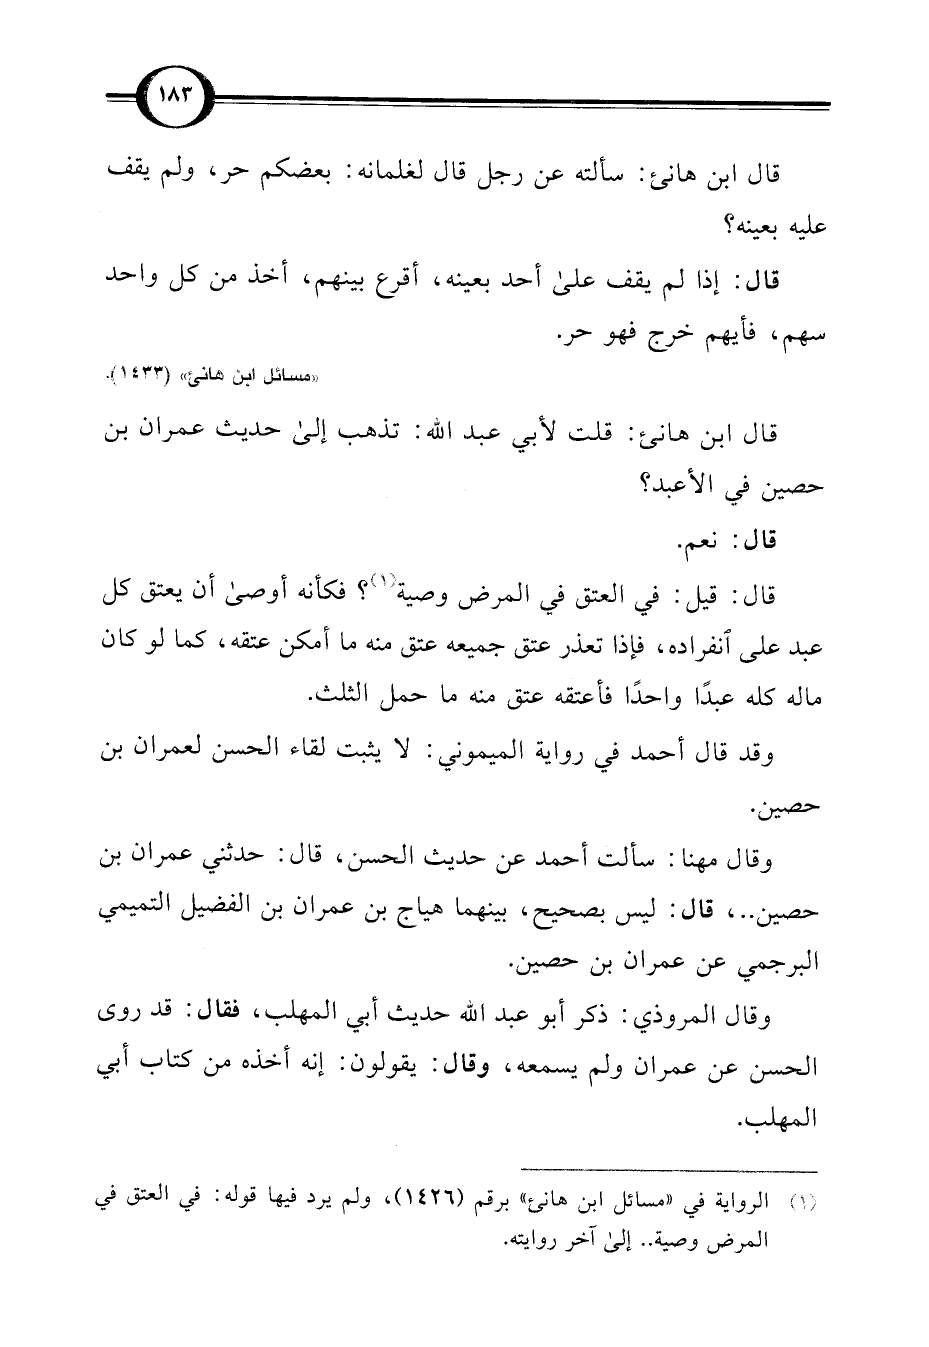 ١٨٣
قال ابن هانئ: سألته عن رجل قال لغلمانه: بعضكم حر، ولم يقف
عليه بعينه؟
قال: إذا لم يقف علىٰ أحد بعينه، أقرع بينهم، أخذ من كل واحد
سهم، فأيهم خرج فهو حر.
«مسائل ابن هانئ» (١٤٣٣).
قال ابن هانئ: قلت لأبي عبد الله: تذهب إلىٰ حديث عمران بن
حصين في الأعبد؟
قال: نعم.
قال: قيل: في العتق في المرض وصية(١)؟ فكأنه أوصىٰ أن يعتق كل
عبد على ٱنفراده، فإذا تعذر عتق جميعه عتق منه ما أمكن عتقه، كما لو كان
ماله كله عبدًا واحدًا فأعتقه عتق منه ما حمل الثلث.
وقد قال أحمد في رواية الميموني: لا يثبت لقاء الحسن لعمران بن
حصين.
وقال مهنا: سألت أحمد عن حديث الحسن، قال: حدثني عمران بن
حصين..، قال: ليس بصحيح، بينهما هياج بن عمران بن الفضيل التميمي
البرجمي عن عمران بن حصين.
وقال المروذي: ذكر أبو عبد الله حديث أبي المهلب، فقال: قد روى
الحسن عن عمران ولم يسمعه، وقال: يقولون: إنه أخذه من كتاب أبي
المهلب.
(١) الرواية في «مسائل ابن هانئ» برقم (١٤٢٦)، ولم يرد فيها قوله: في العتق في
المرض وصية.. إلىٰ آخر روايته.